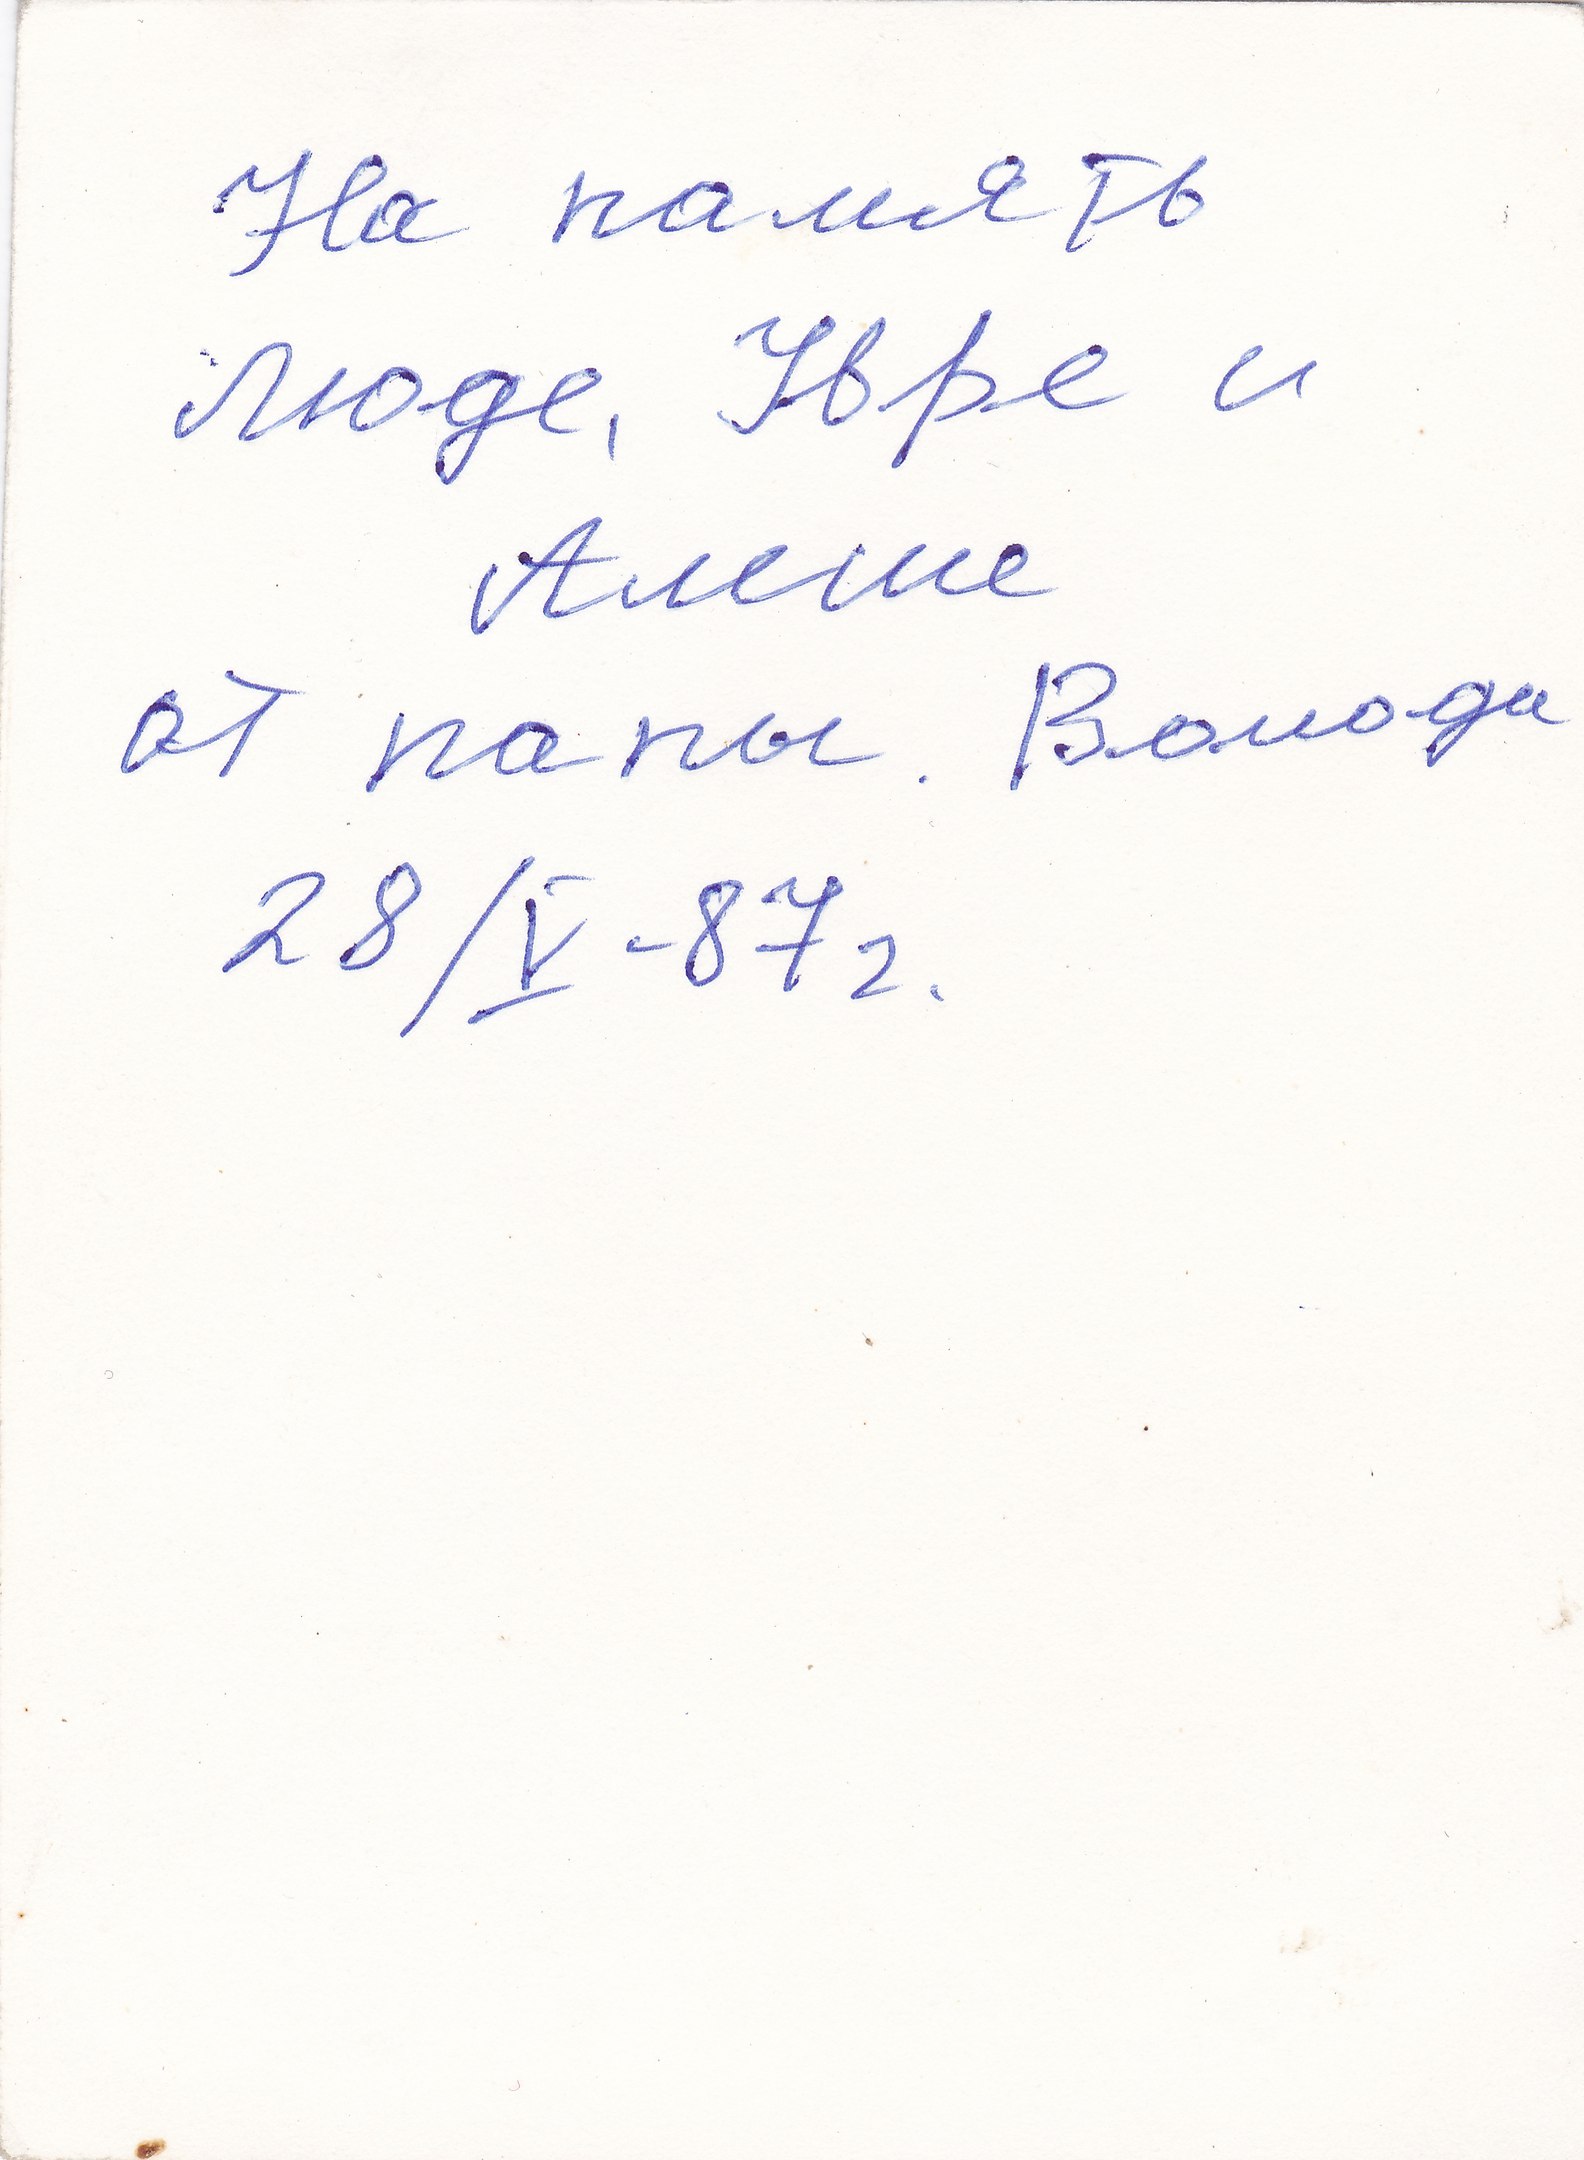 На память
Люде, Юре и
Алеше
от папы. Володи
28/V-87г.